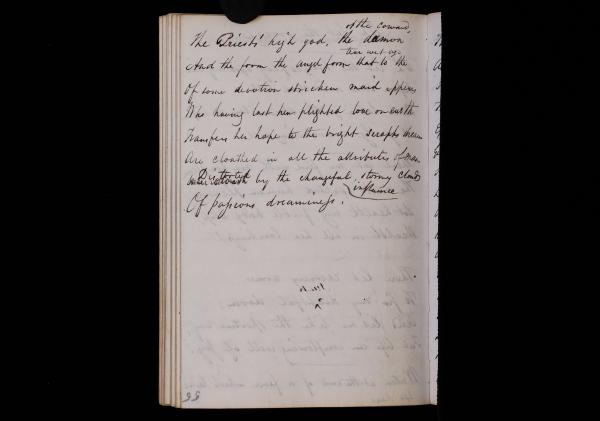 of the coward
The Priests' high god, the demon
tear wet eye
And the form the angel form that to the
Of some devotion stricken maid appears
Who having lost her plighted love on earth
Transfers her hope to the bright Seraphs dream
Are cloathed in all the attributes of man
Distorted by the changeful stormy clouds
influence
Of passions dreaminess.